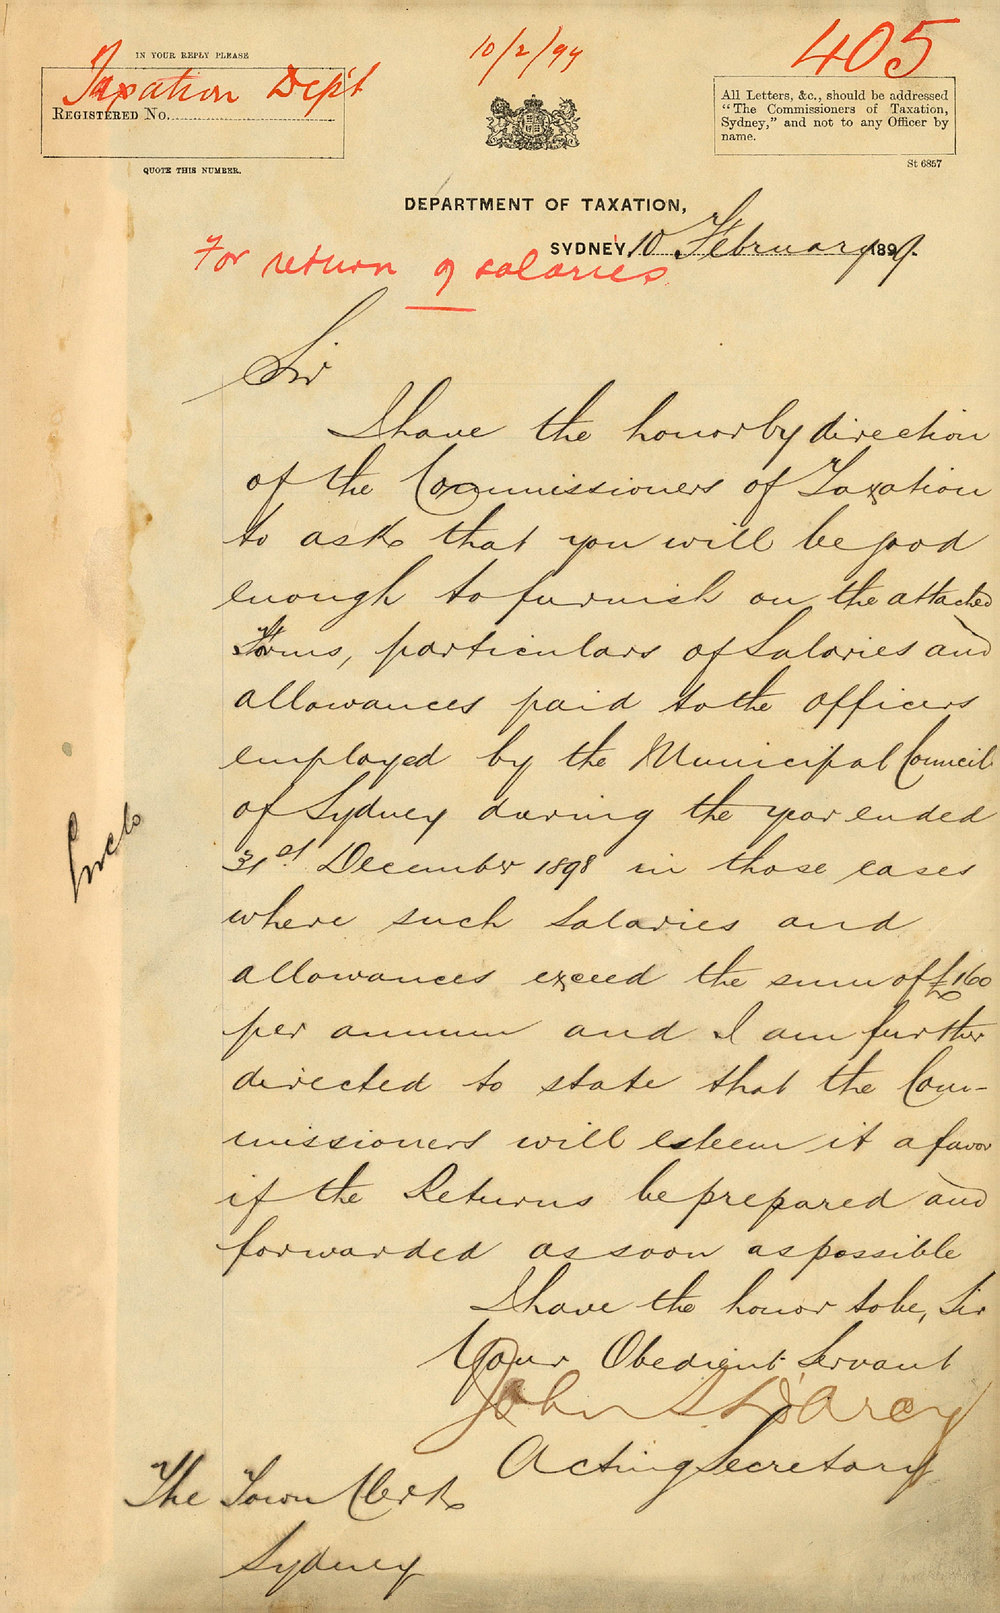 IN YOUR REPLY PLEASE
Taxation Dep't
REGISTERED No.
QUOTE THIS NUMBER.
10/2/99
405
All Letters, &c., should be addressed
"The Commissioners of Taxation,
Sydney," and not to any Officer by
name.
St 6857
DEPARTMENT OF TAXATION,
SYDNEY, 10 February 1899.
For return of salaries
Sir
I have the honor by direction
of the Commissioners of Taxation
to ask that you will be good
enough to furnish on the attached
Forms, particulars of Salaries and
allowances paid to the officers
employed by the Municipal Council
of Sydney during the year ended
31st December 1898 in those cases
where such salaries and
allowances exceed the sum of £160
per annum and I am further
directed to state that the Com-
missioners will esteem it a favor
if the Returns be prepared and
forwarded as soon as possible
I have the honor to be, Sir
Your Obedient Servant
John D'Arcy
Acting Secretary
The Town Clerk
Sydney
Inclo